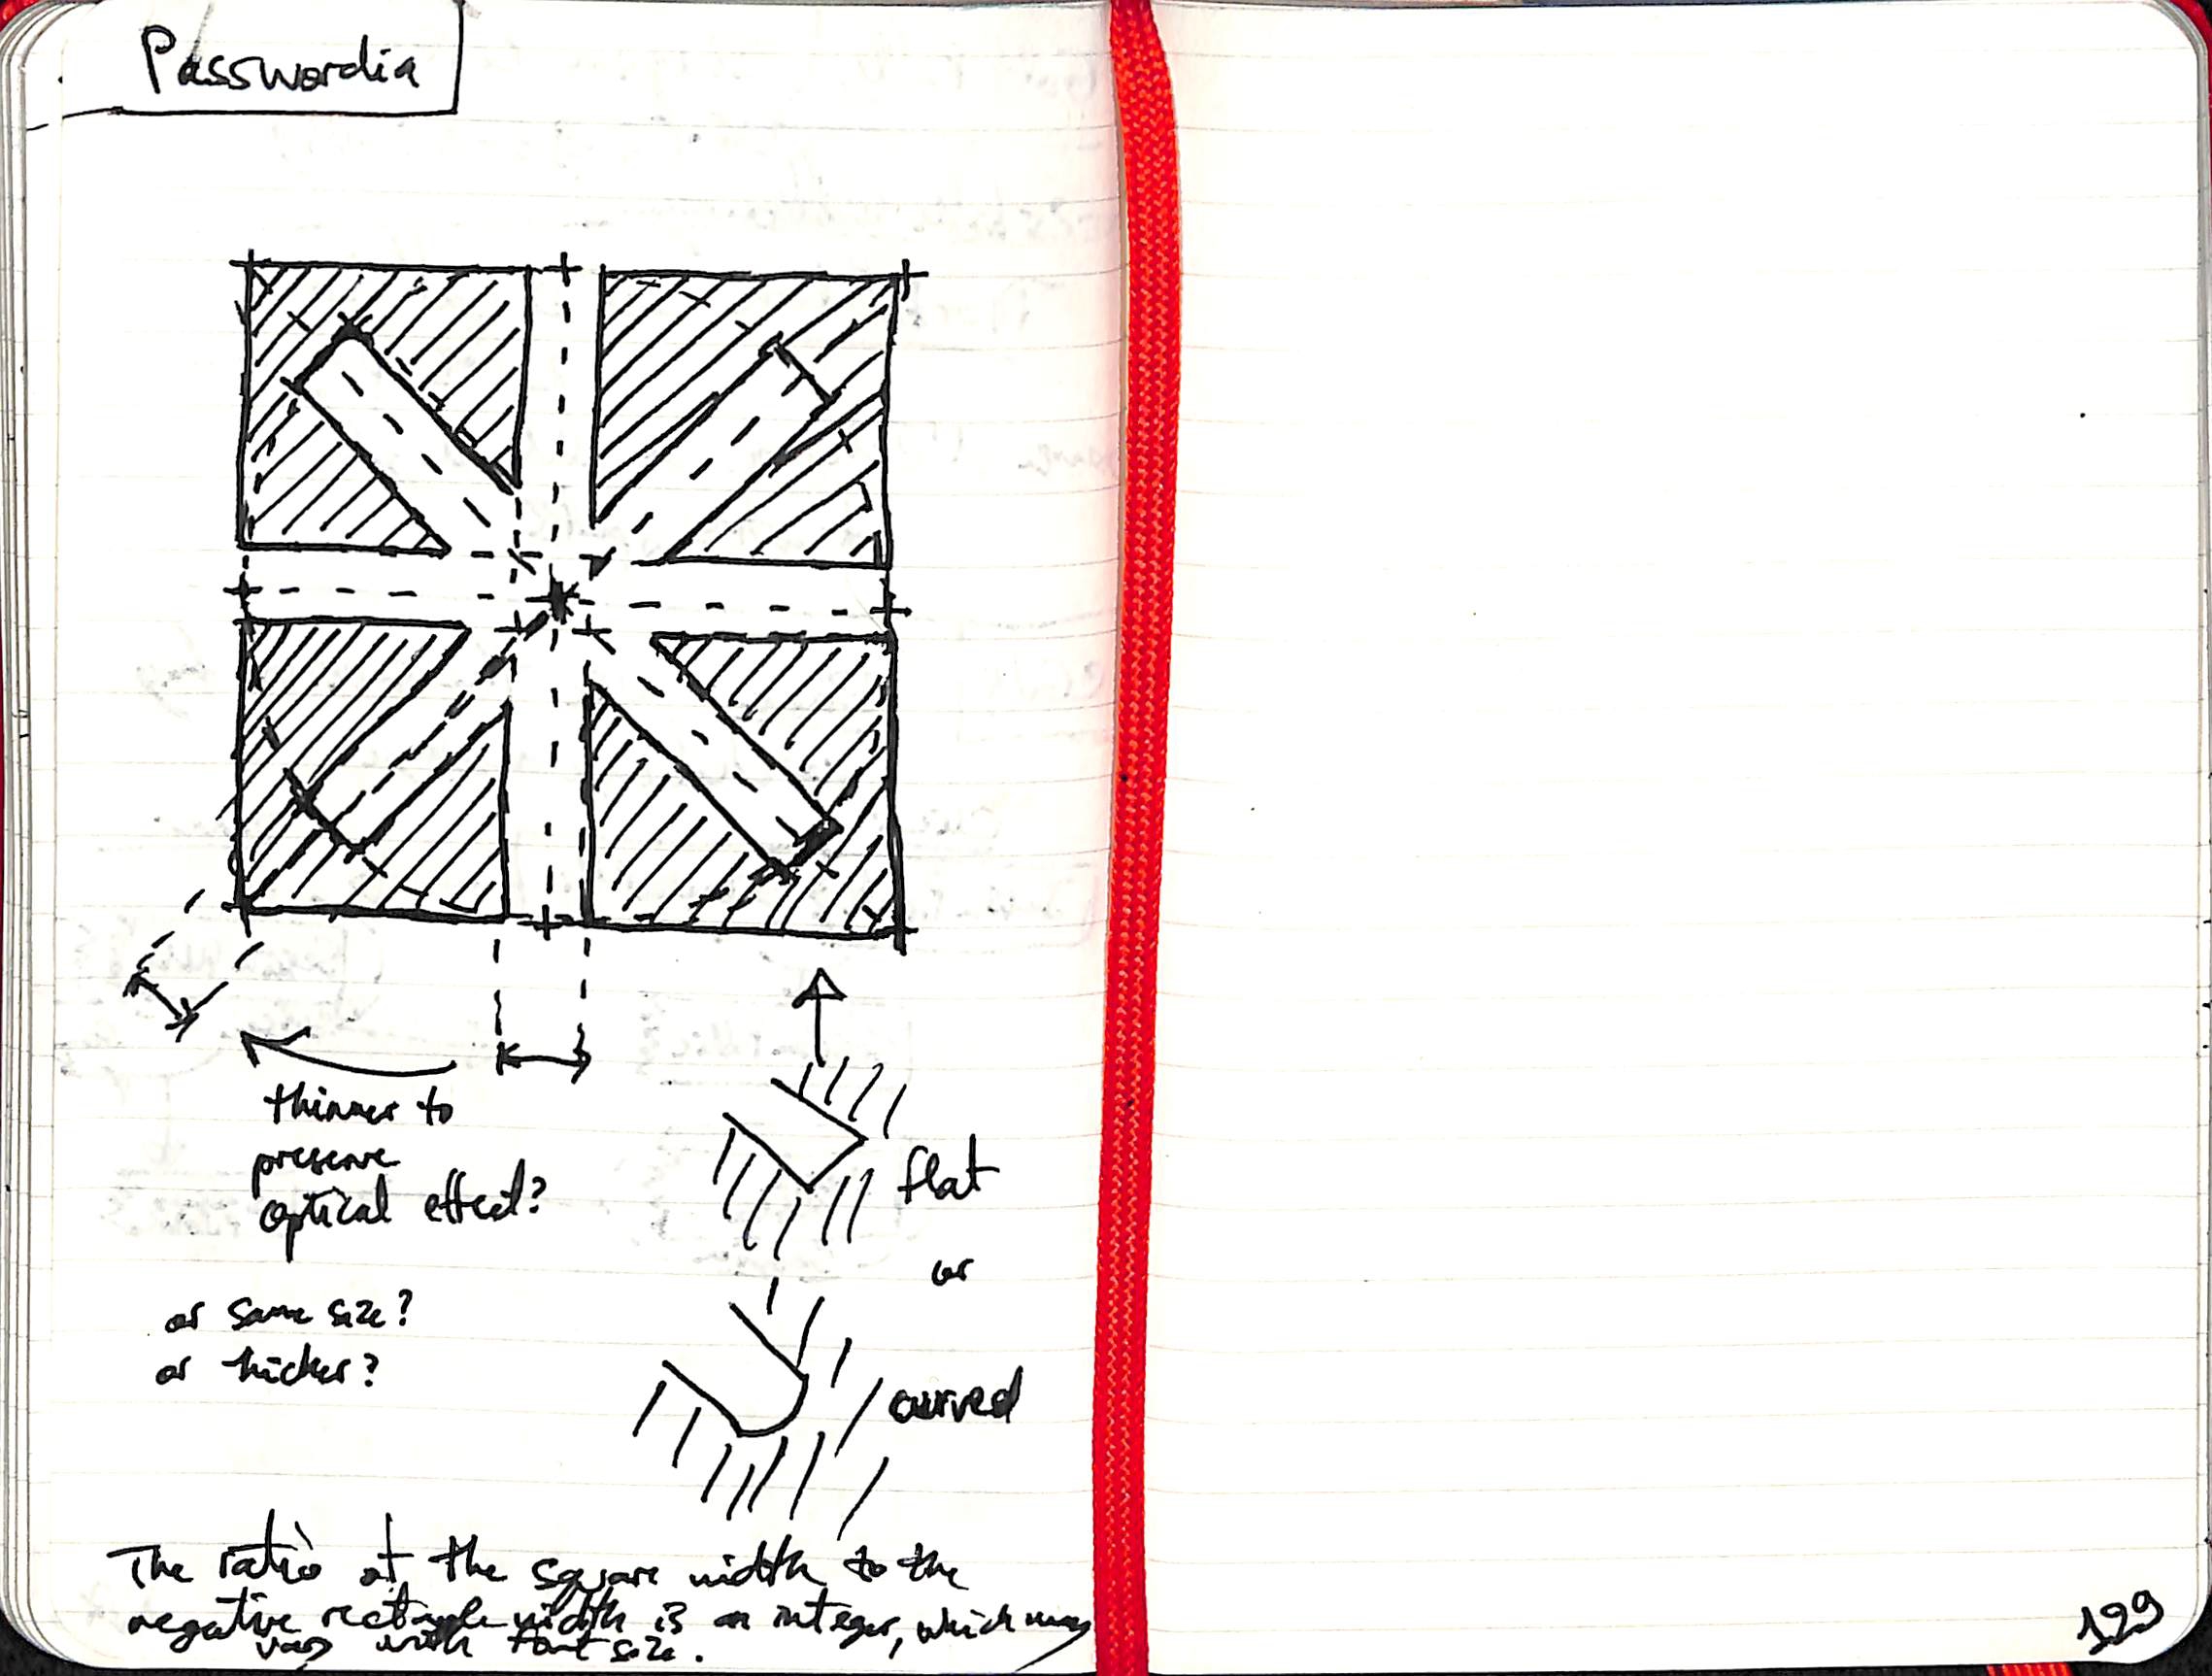 Passwordia
thinner to
preserve
optical effect?
or same size?
or thicker?
flat
or
curved
The ratio of the square width to the
negative rectangle width is an integer, which may
vary with font size.
199